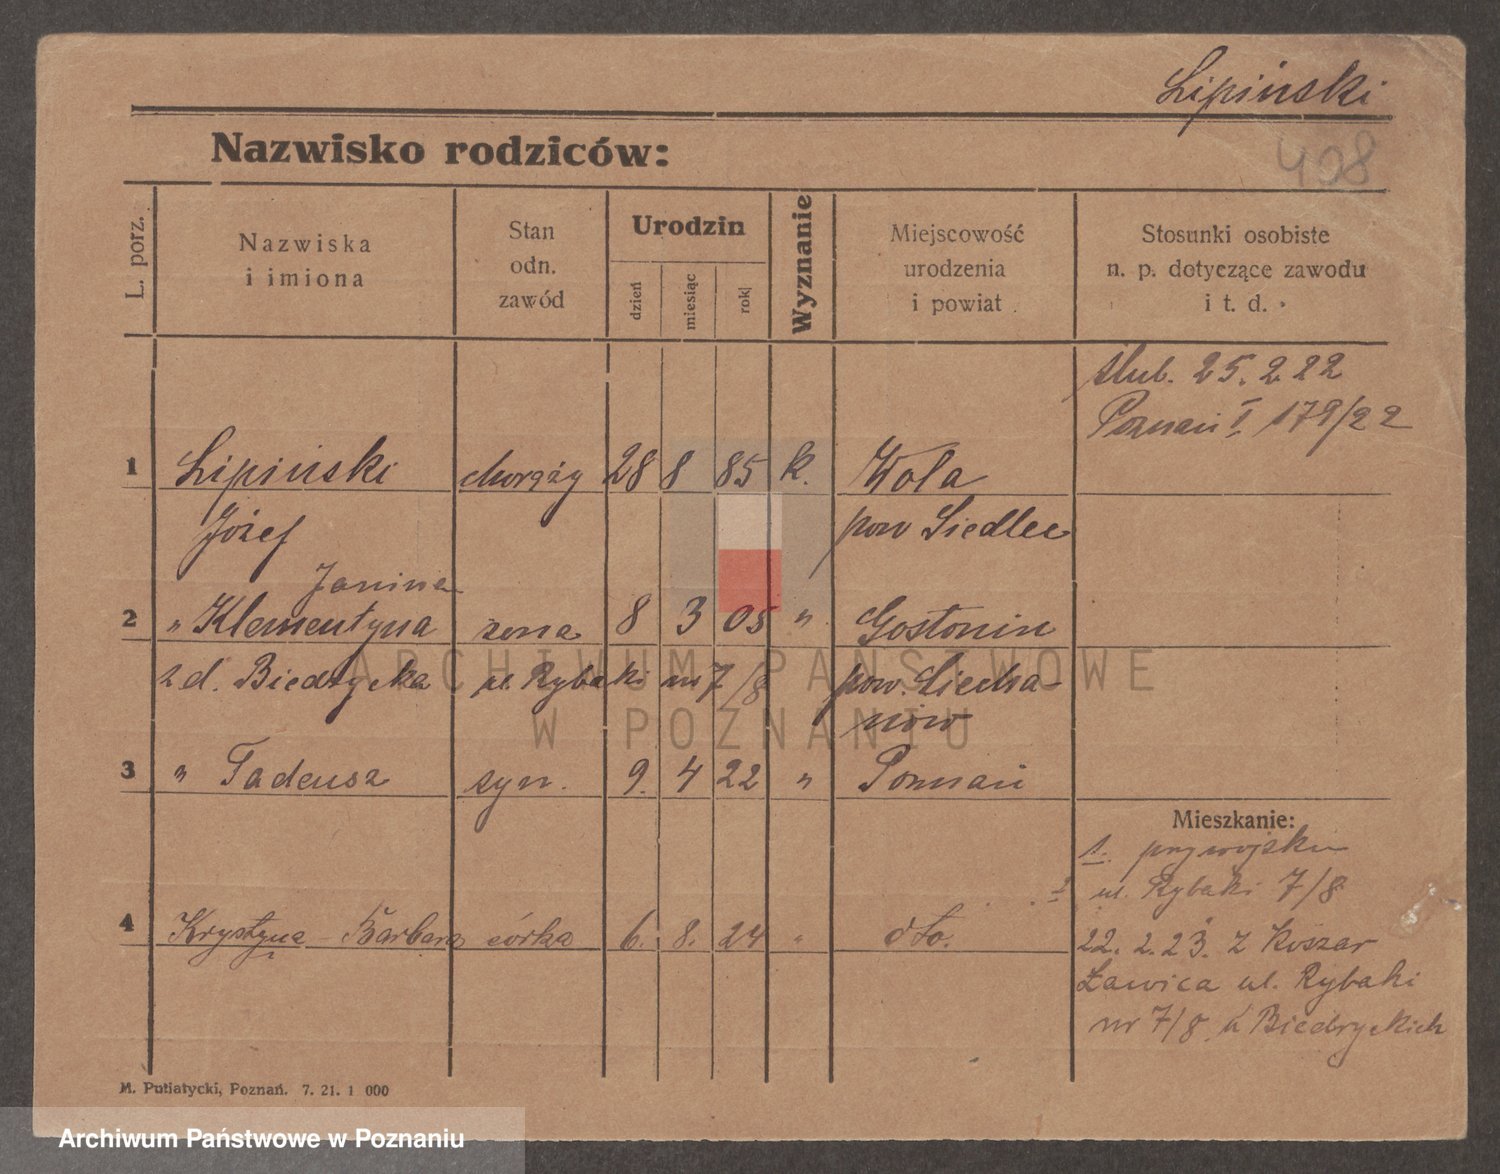 Lipiński
408
Nazwisko rodziców:
L. porz.
Nazwiska
i imiona
Stan
odn.
zawód
Urodzin
dzień
miesiąc
rok
Wyznanie
Miejscowość
urodzenia
i powiat
Stosunki osobiste
n. p. dotyczące zawodu
i t. d.
ślub. 25. 2 22
Poznań I, 179/22
1 Lipiński chorąży 28 8 85 k. Wola
Józef pow Siedlec
Janina
2 " Klementyna żona 8 3 05 " Gostonin
z d. Biedrycka ul. Rybaki nr 7/8 pow. Ciecha-
nów
3 " Tadeusz syn. 9. 4 22 " Poznań
Mieszkanie:
1. przy wojsku
ul. Rybaki 7/8
4 Krystyna - Barbara córka 6. 8. 24 " dto.
22. 2. 23. z Koszar
Ławica ul. Rybaki
nr 7/8 u Biedryckich
M. Putiatycki, Poznań. 7. 21. 1 000
ARCHIWUM PAŃSTWOWE
W POZNANIU
Archiwum Państwowe w Poznaniu